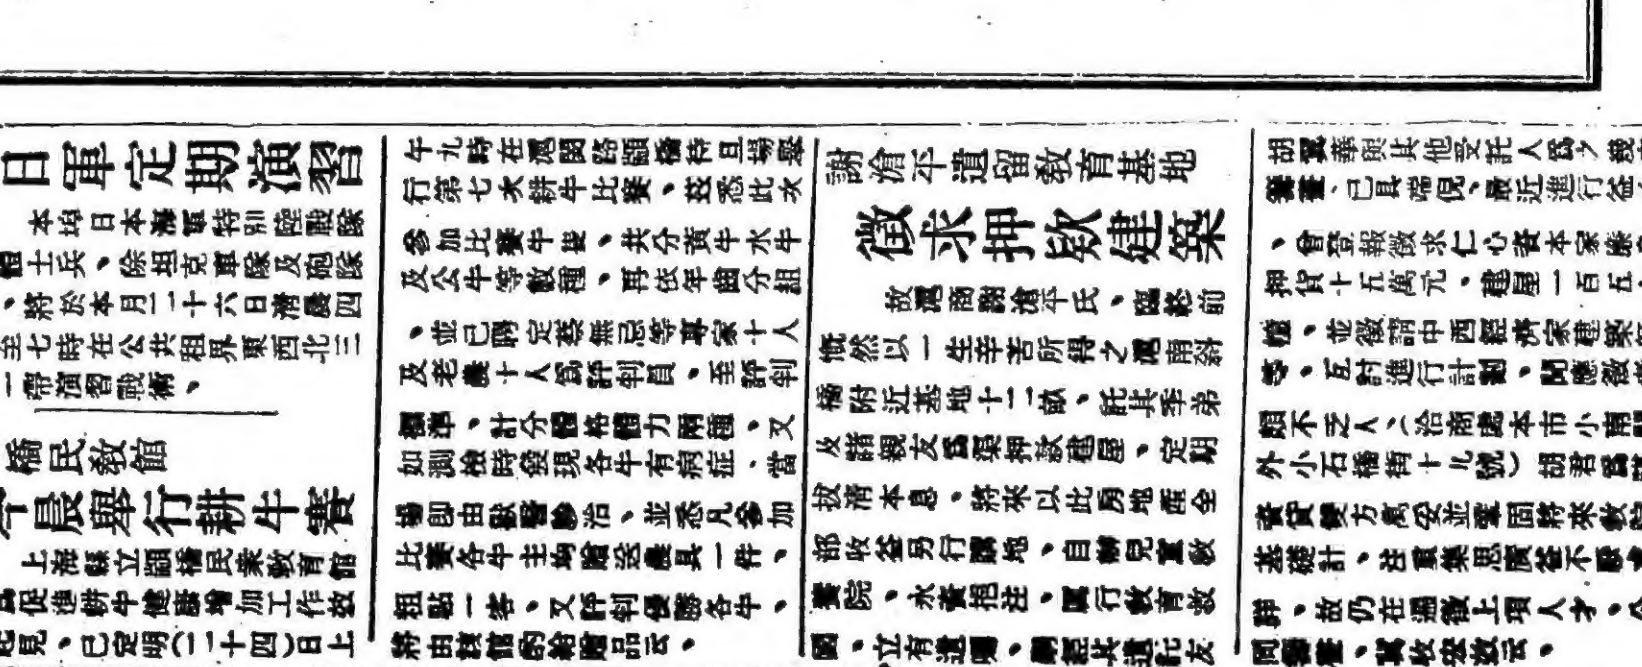 日軍定期演習
本埠日本海軍特別陸戰隊
體士兵、除坦克車隊及砲隊
、將於本月二十六日清晨四
至七時在公共租界東西北三
一帶演習戰術。
橋民教館
今晨舉行耕牛賽
上海縣立顓橋民衆教育館
為促進耕牛健康增加工作效
起見、已定明(二十四)日上
午九時在滬閔路顓橋待旦場舉
行第七次耕牛比賽、茲悉此次
參加比賽牛隻、共分黃牛水牛
及公牛等數種、再依年齒分組
、並已聘定蔡無忌等專家十人
及老農十人為評判員、至評判
標準、計分體格體力兩種、又
如測驗時發現各牛有病症、當
場即由獸醫診治、並悉凡參加
比賽各牛主均贈送農具一件、
粗點一客、又評判優勝各牛、
將由該館酌給贈品云。
謝滄平遺留教育基地
徵求押款建築
故滬商謝滄平氏、臨終前
慨然以一生辛苦所得之滬南斜
橋附近基地十二畝、託其季弟
及諸親友為築押款造屋、定期
拔清本息、將來以此房地產全
部收益另行購地、自辦兒童教
養院、永資挹注、厲行教育救
國、立有遺囑、嗣經其遺託友
胡 與其他受託人為之
籌畫、已具端倪、最近進行益
、會登報徵求仁心資本家
押貸十五萬元、建屋一百五
幢、並徵請中西經濟家建築
等、互討進行計劃、聞應徵
頗不乏人、(洽商處本市小南門
外小石橋街十九號)胡君為
資貸雙方萬妥並鞏固將來教
基礎計、甚冀集思廣益不厭
詳、故仍在週徵上項人才、
同籌畫、冀收宏效云。